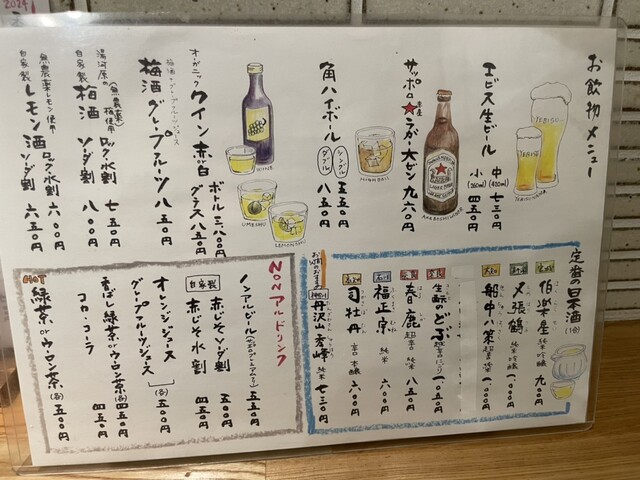 お飲物メニュー
エビス生ビール
中(420ml) 七三〇円
小(260ml) 四五〇円
サッポロ★ラガー大ビン 九六〇円
角ハイボール
シングル 五五〇円
ダブル 八五〇円
オーガニック
ワイン 赤or白
ボトル 三八〇〇円
グラス 八五〇円
梅酒+グレープフルーツジュース
梅酒グレープフルーツ 八五〇円
湯河原の(無農薬)梅使用
自家製 梅酒
ロック・水割 七五〇円
ソーダ割 八〇〇円
無農薬レモン使用
自家製 レモン酒
ロック・水割 六〇〇円
ソーダ割 六五〇円
YEBISU
YEBISU
YEBISU NAMA
AKABOSHI BIN
HIGHBALL
WINE
UMESHU
LEMONSHU
定番の日本酒(1合)
宮城 伯楽星 純米吟醸 九〇〇円
〆張鶴 純米吟醸 一、〇〇〇円
高知 船中八策 超辛純米 一、〇〇〇円
生酛のどぶ にごり 一、〇五〇円
奈良 春鹿 超辛口純米 八五〇円
石川 福正宗 純米 六〇〇円
高知 司牡丹 辛口本醸 六〇〇円
お燗のおすすめ
神奈川 丹沢山 秀峰 純米 七三〇円
NONアルドリンク
ノンアルビール 五五〇円
自家製
赤じそソーダ割 五〇〇円
赤じそ水割 四五〇円
オレンジジュース
グレープフルーツジュース
(各)五〇〇円
香ばし緑茶orウーロン茶(各)四五〇円
コカ・コーラ 四五〇円
HOT
緑茶orウーロン茶(各)五〇〇円
2024